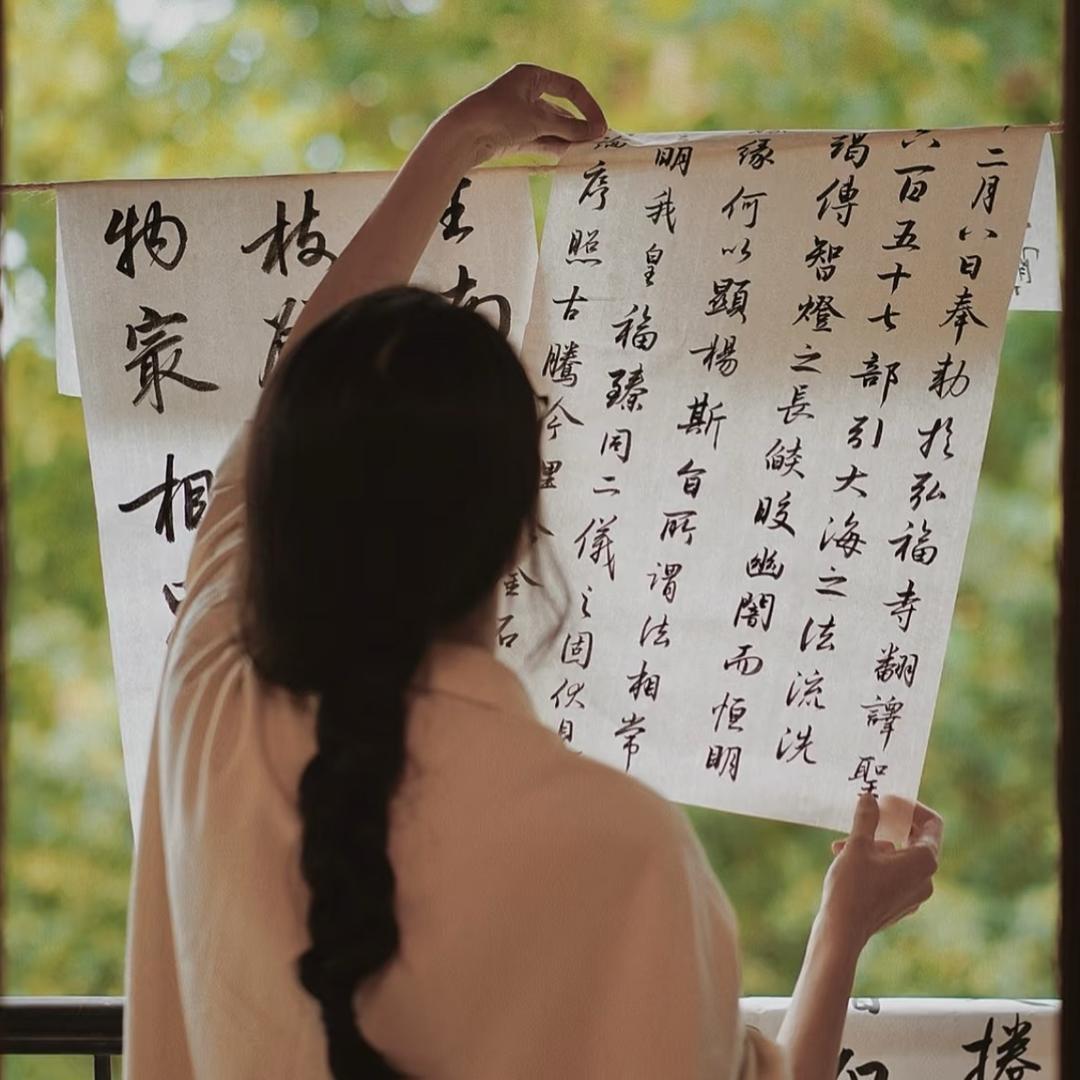 二月六日奉勅於弘福寺翻譯聖
六百五十七部引大海之法流洗
竭傳智燈之長焰皎幽闇而恒明
緣何以顯楊斯旨所謂法相常
明我皇福臻同二儀之固伏見
序照古騰今理含金石
生南
枝
物最相
捲